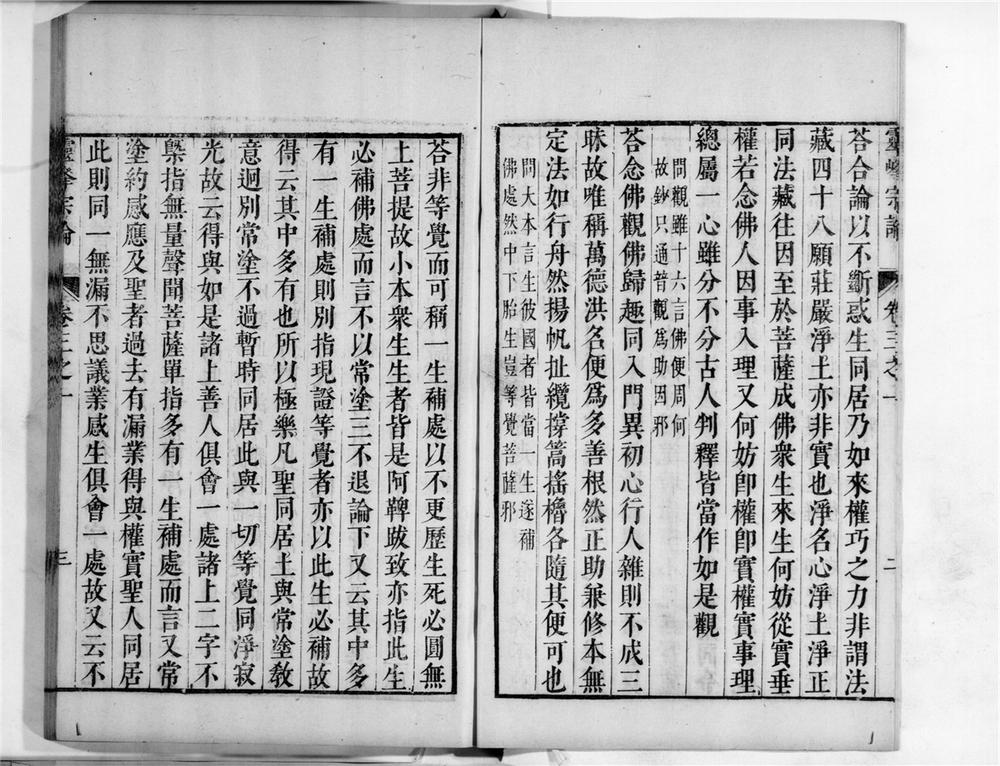 靈峰宗論
卷三之一
二
荅合論以不斷惑生同居乃如來權巧之力非謂法
藏四十八願莊嚴淨土亦非實也淨名心淨土淨正
同法藏往因至於菩薩成佛衆生來生何妨從實垂
權若念佛人因事入理又何妨卽權卽實權實事理
總屬一心雖分不分古人判釋皆當作如是觀
問觀雖十六言佛便周何
故鈔只通普觀爲助因邪
荅念佛觀佛歸趣同入門異初心行人雜則不成三
昧故唯稱萬德洪名便爲多善根然正助兼修本無
定法如行舟然揚帆扯纜撐篙搖櫓各隨其便可也
問大本言生彼國者皆當一生遂補
佛處然中下胎生豈等覺菩薩邪
荅非等覺而可稱一生補處以不更歷生死必圓無
上菩提故小本衆生生者皆是阿鞞跋致亦指此生
必補佛處而言不以常塗三不退論下又云其中多
有一生補處則別指現證等覺者亦以此生必補故
得云其中多有也所以極樂凡聖同居土與常塗敎
意迥別常塗不過暫時同居此與一切等覺同淨寂
光故云得與如是諸上善人俱會一處諸上二字不
槩指無量聲聞菩薩單指多有一生補處而言又常
塗約感應及聖者過去有漏業得與權實聖人同居
此則同一無漏不思議業感生俱會一處故又云不
靈峰宗論
卷三之一
三